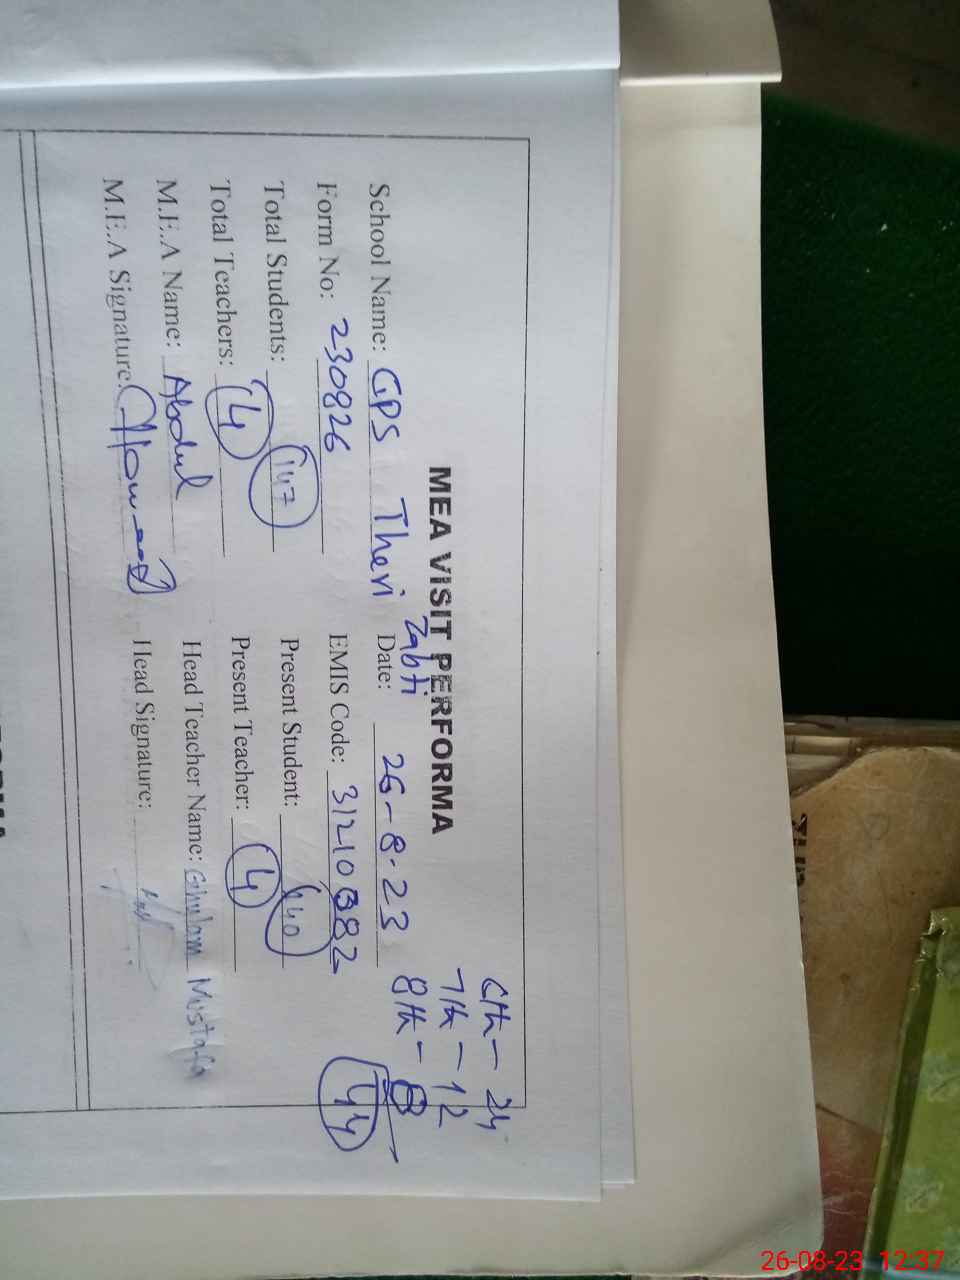 MEA VISIT PERFORMA
6th - 24
7th - 12
8th - 8
44
School Name: GPS Theri Zabti Date: 26-8-23
Form No: 230826 EMIS Code: 31210382
Total Students: 147 Present Student: 140
Total Teachers: 4 Present Teacher: 4
M.E.A Name: Abdul Head Teacher Name: Ghulam Mustafa
M.E.A Signature: Head Signature:
26-08-23 12:37